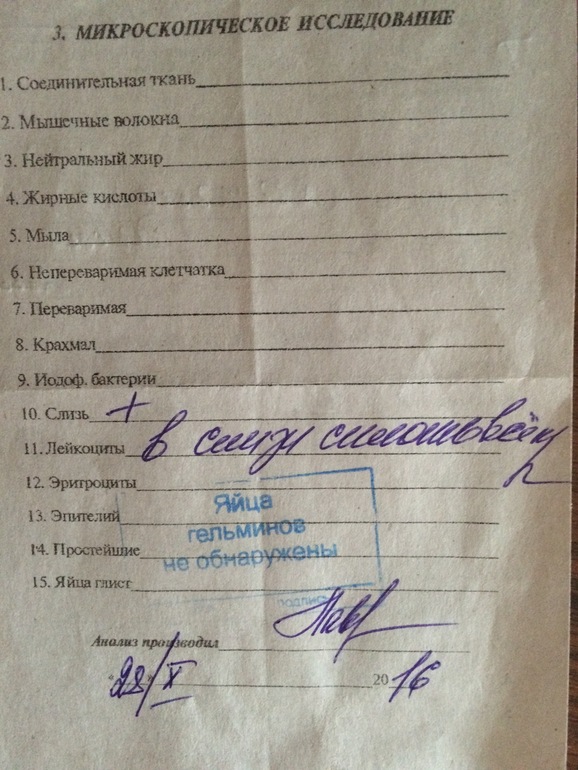 3. МИКРОСКОПИЧЕСКОЕ ИССЛЕДОВАНИЕ
1. Соединительная ткань
2. Мышечные волокна
3. Нейтральный жир
4. Жирные кислоты
5. Мыла
6. Непереваримая клетчатка
7. Переваримая
8. Крахмал
9. Иодоф. бактерии
10. Слизь +
11. Лейкоциты в слизи сплошь
12. Эритроциты
13. Эпителий
14. Простейшие
15. Яйца глист
Яйца
гельминов
не обнаружены
подпись
Анализ производил
"28/X 2016